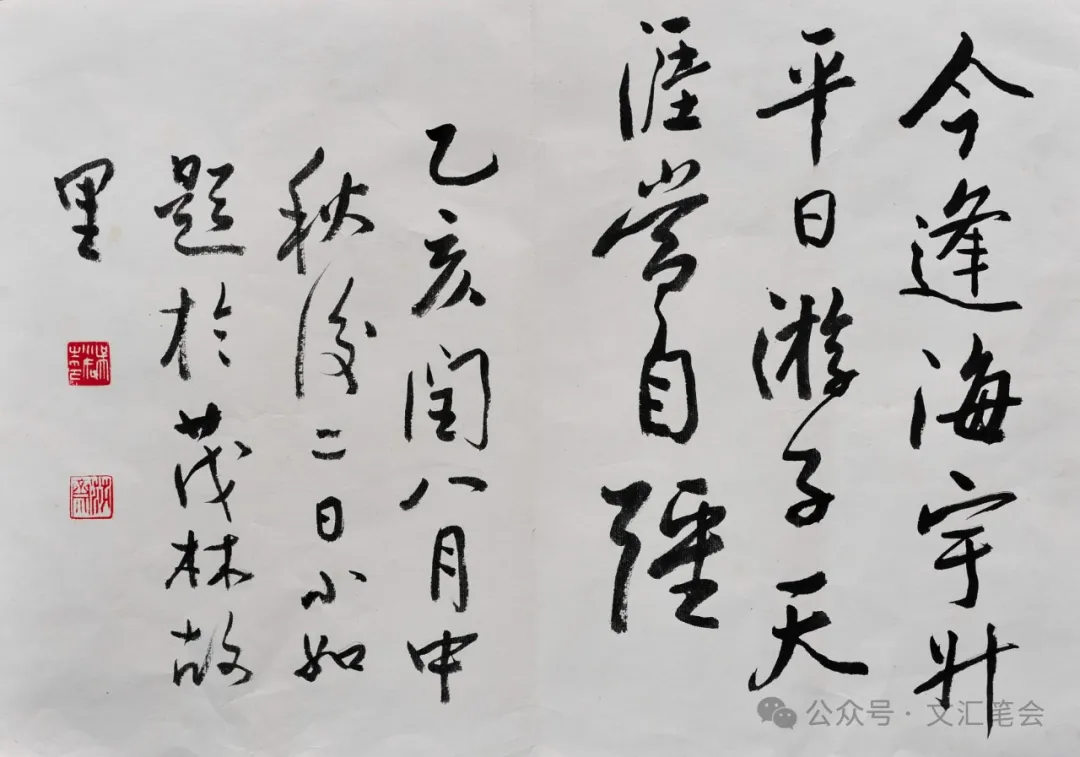 今逢海宇升
平日游子天
涯當自强
乙亥閏八月中
秋後二日小如
題於茂林故
里
公众号·文汇笔会